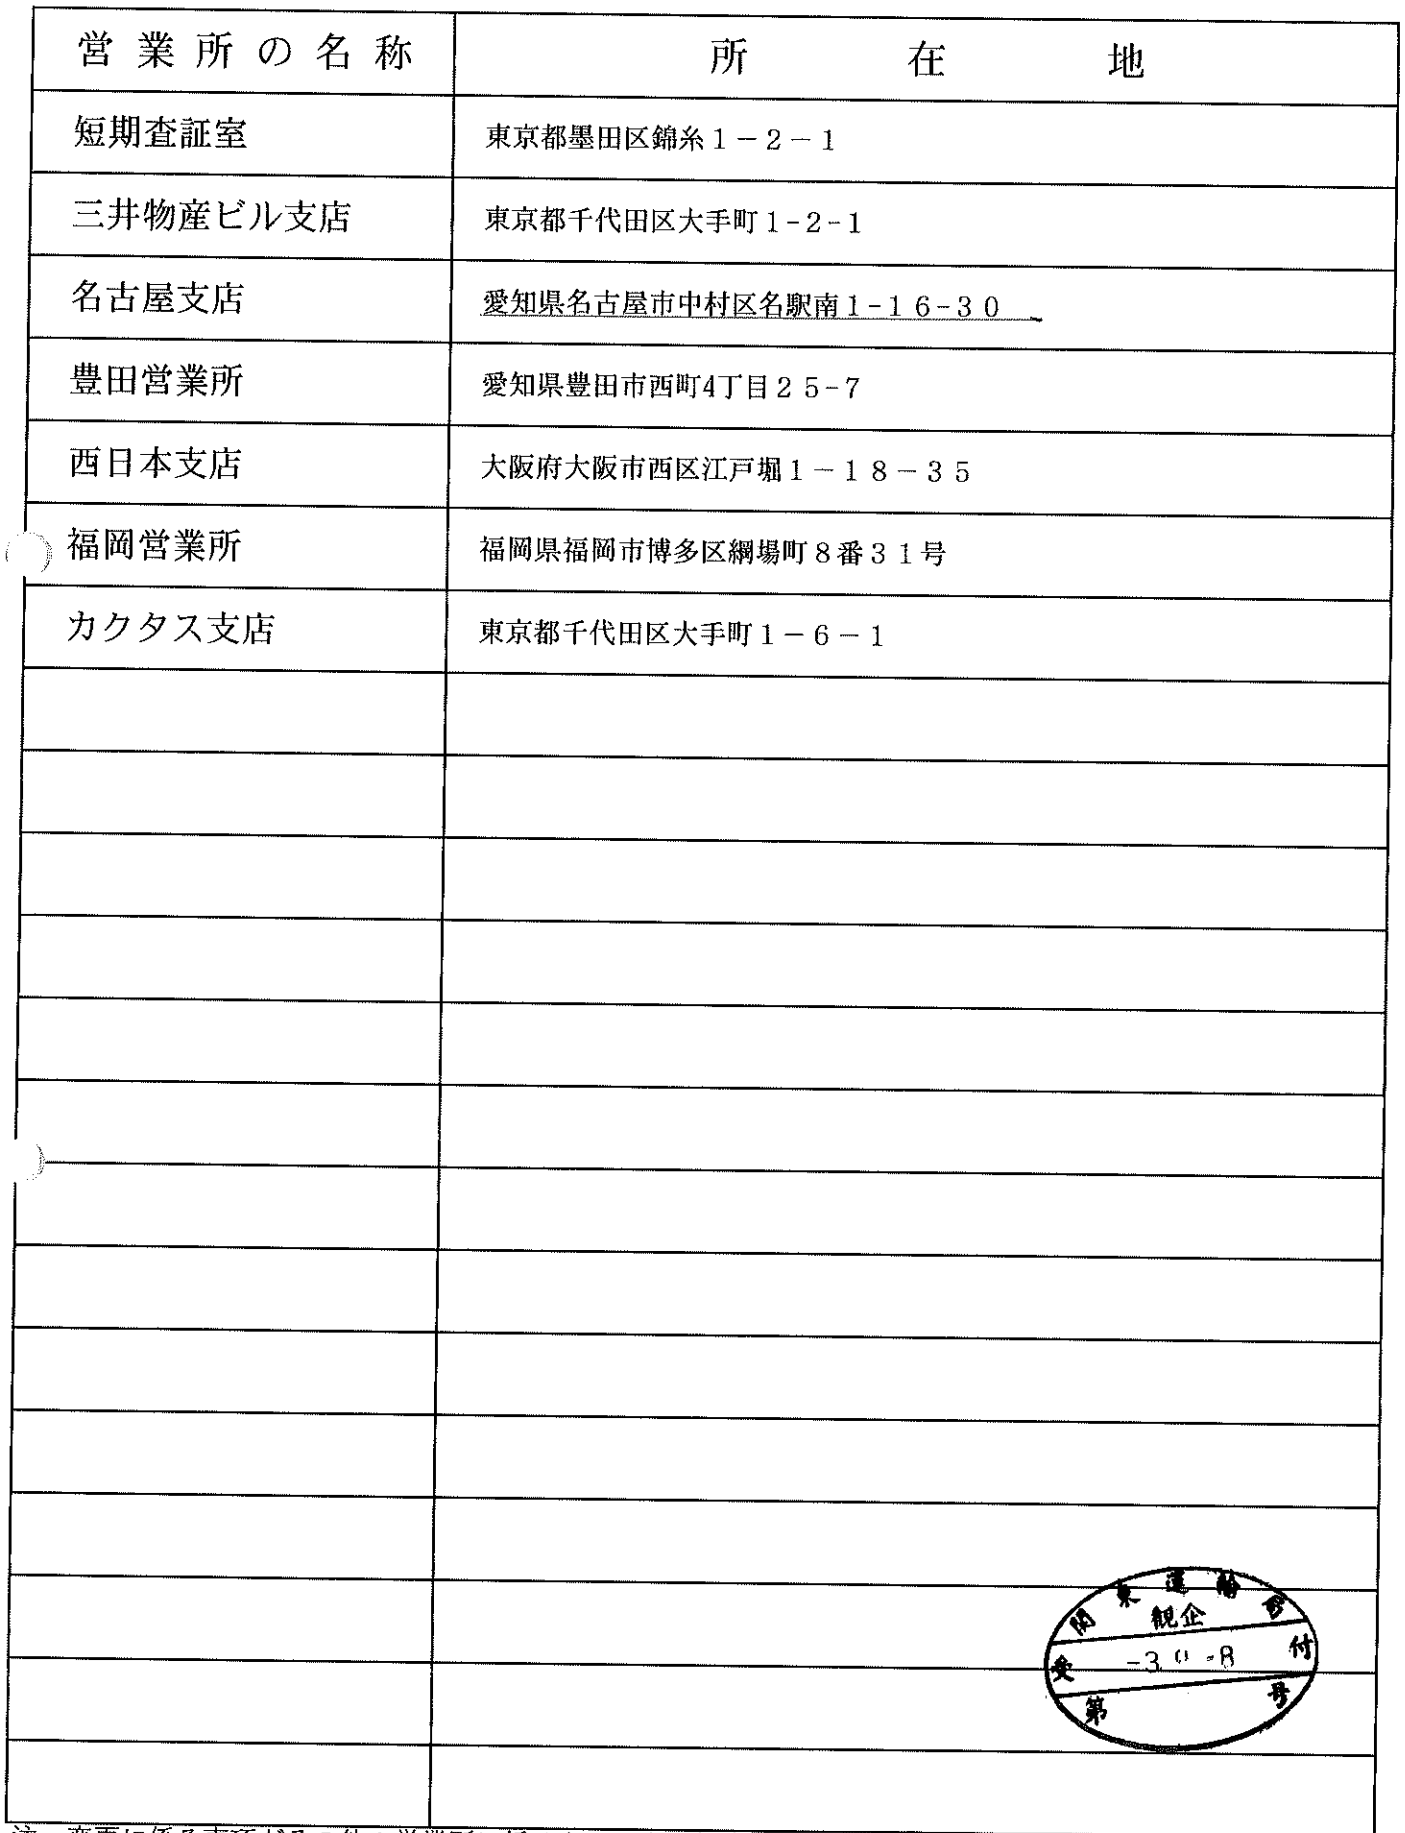 営業所の名称 所在地
短期査証室 東京都墨田区錦糸1－2－1
三井物産ビル支店 東京都千代田区大手町1-2-1
名古屋支店 愛知県名古屋市中村区名駅南1-16-30
豊田営業所 愛知県豊田市西町4丁目25-7
西日本支店 大阪府大阪市西区江戸堀1－18－35
福岡営業所 福岡県福岡市博多区綱場町8番31号
カクタス支店 東京都千代田区大手町1－6－1
関東運輸局
観企
受 付
第 号